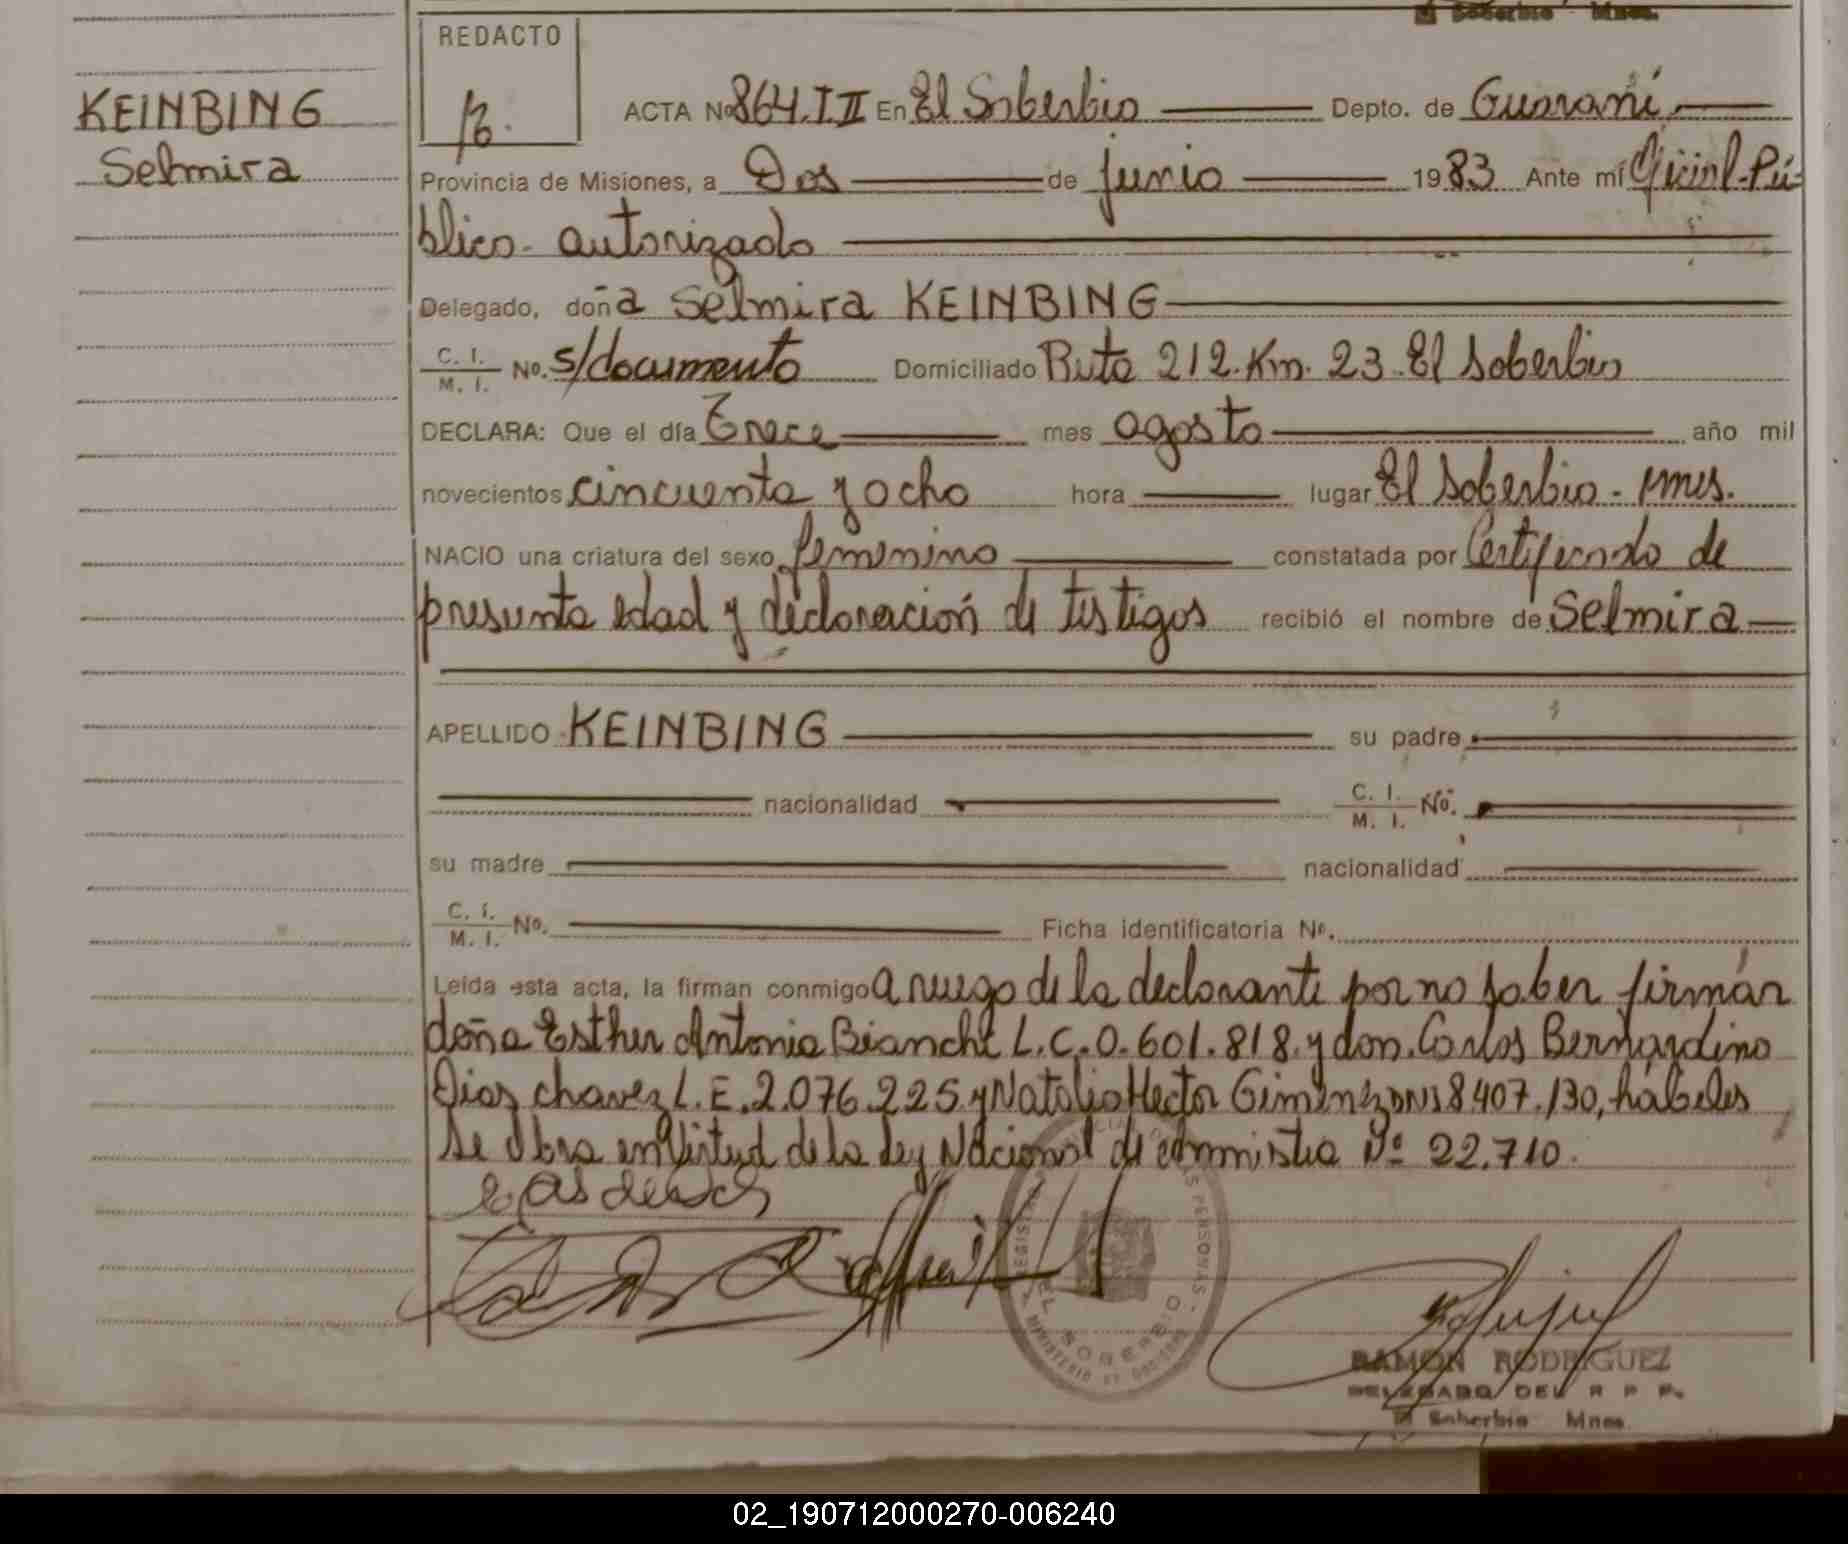 El Soberbio Mnes.
REDACTO
KEINBING
Selmira
ACTA Nº 864.T.II En El Soberbio Depto. de Guaraní
Provincia de Misiones, a Dos de junio 1983 Ante mí Oficial-Pú-
blico autorizado
Delegado, doña Selmira KEINBING
C. I. / M. I. No. s/documento Domiciliado Ruta 212. Km. 23. El Soberbio
DECLARA: Que el día Trece mes agosto año mil
novecientos cincuenta y ocho hora lugar El Soberbio - mnes.
NACIO una criatura del sexo femenino constatada por Certificado de
presunta edad y declaración de testigos recibió el nombre de Selmira
APELLIDO KEINBING su padre
nacionalidad C. I. / M. I. No.
su madre nacionalidad
C. I. / M. I. No. Ficha identificatoria No.
Leída esta acta, la firman conmigo a ruego de la declarante por no saber firmar
doña Esther Antonia Bianchi L.C.0.601.818. y don. Carlos Bernardino
Diaz chavez L.E.2.076.225 y Natalio Hector Gimenez DNI 8.407.130, hábiles
Se Obra en Virtud de la Ley Nacional de amnistia Nº 22.710.
REGISTRO PERSONAS
EL SOBERBIO
RAMON RODRIGUEZ
DELEGADO DEL R P P.
El Soberbio Mnes.
02_190712000270-006240